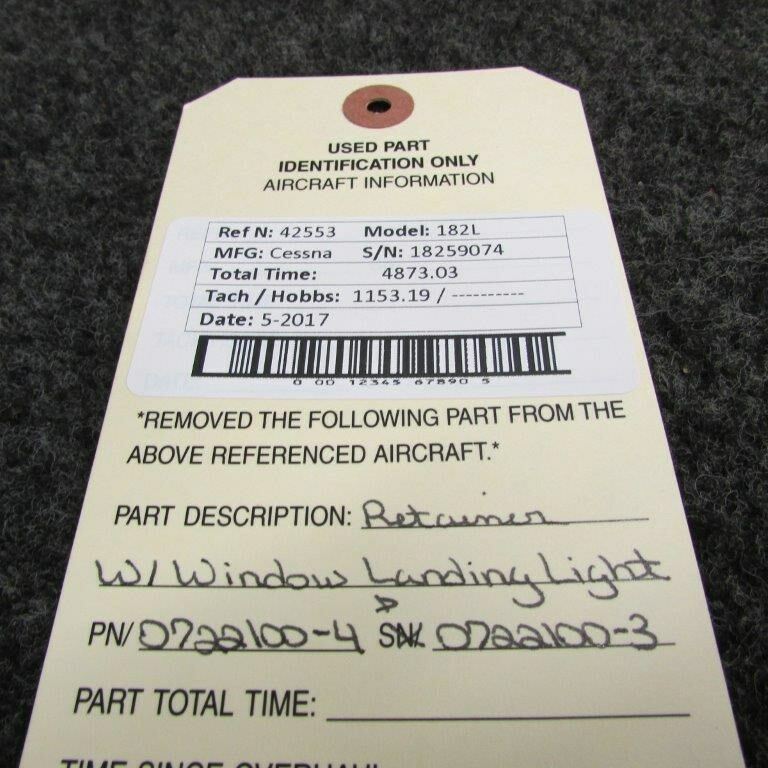 USED PART
IDENTIFICATION ONLY
AIRCRAFT INFORMATION
Ref N: 42553 Model: 182L
MFG: Cessna S/N: 18259074
Total Time: 4873.03
Tach / Hobbs: 1153.19 / ----------
Date: 5-2017
0 00 12345 67890 5
*REMOVED THE FOLLOWING PART FROM THE
ABOVE REFERENCED AIRCRAFT.*
PART DESCRIPTION: Retainer
W/ Window Landing Light
PN/ 0722100-4 SN/ 0722100-3
PART TOTAL TIME:
TIME SINCE OVERHAUL